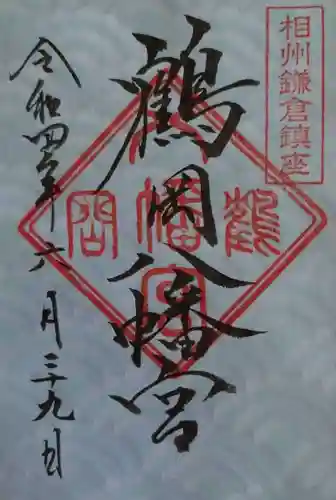 相州鎌倉鎮座
鶴岡八幡宮
令和四年六月二十九日